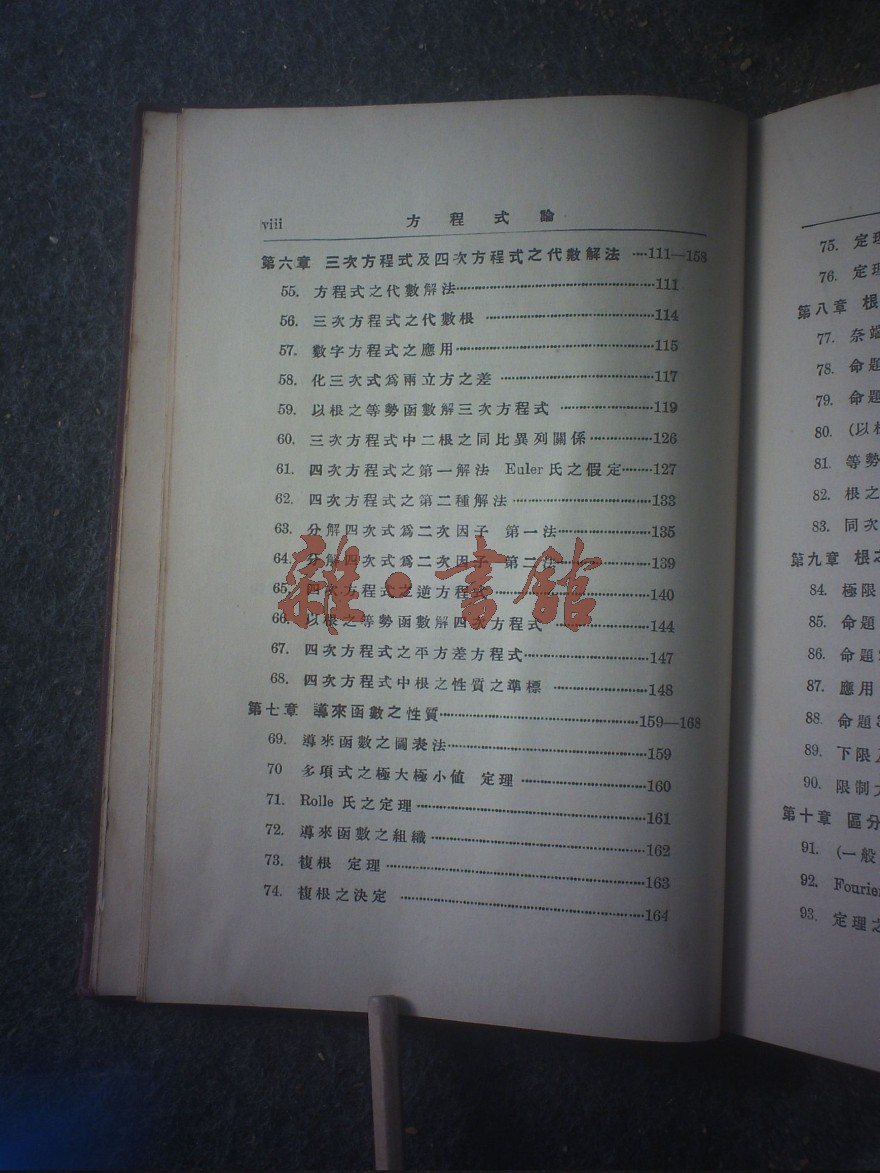 viii 方程式論
第六章 三次方程式及四次方程式之代數解法 ····111—158
55. 方程式之代數解法····111
56. 三次方程式之代數根 ····114
57. 數字方程式之應用····115
58. 化三次式爲兩立方之差 ····117
59. 以根之等勢函數解三次方程式 ····119
60. 三次方程式中二根之同比異列關係····126
61. 四次方程式之第一解法 Euler 氏之假定····127
62. 四次方程式之第二種解法····133
63. 分解四次式爲二次因子 第一法····135
64. 分解四次式爲二次因子 第二法····139
65. 四次方程式之逆方程式····140
66. 以根之等勢函數解四次方程式 ····144
67. 四次方程式之平方差方程式····147
68. 四次方程式中根之性質之準標 ····148
第七章 導來函數之性質····159—168
69. 導來函數之圖表法····159
70 多項式之極大極小値 定理····160
71. Rolle 氏之定理····161
72. 導來函數之組織····162
73. 複根 定理····163
74. 複根之決定 ····164
雜·書館
75. 定理
76. 定理
第八章 根
77. 奈端
78. 命題
79. 命題
80. (以根
81. 等勢
82. 根之
83. 同次
第九章 根之
84. 極限
85. 命題
86. 命題
87. 應用
88. 命題
89. 下限
90. 限制
第十章 區分
91. (一般
92. Fourier
93. 定理之